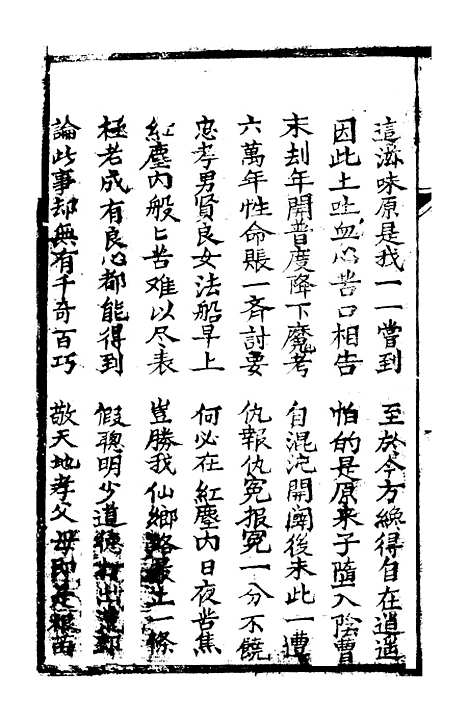 這滋味原是我一一嘗到　至於今方纔得自在逍遥
因此上吐血心苦口相告　怕的是原来子隨入陰曹
末刦年開普度降下魔考　自混沌開闢後未此一遭
六萬年性命賬一斉討要　仇報仇冤报冤一分不饒
忠孝男賢良女法船早上　何必在紅塵内日夜苦焦
紅塵内般匕苦难以尽表　豈勝我仙鄉路最上一條
極若成有良心都能得到　假聰明少道德
論此事却無有千奇百巧　敬天地孝父母即是根苗